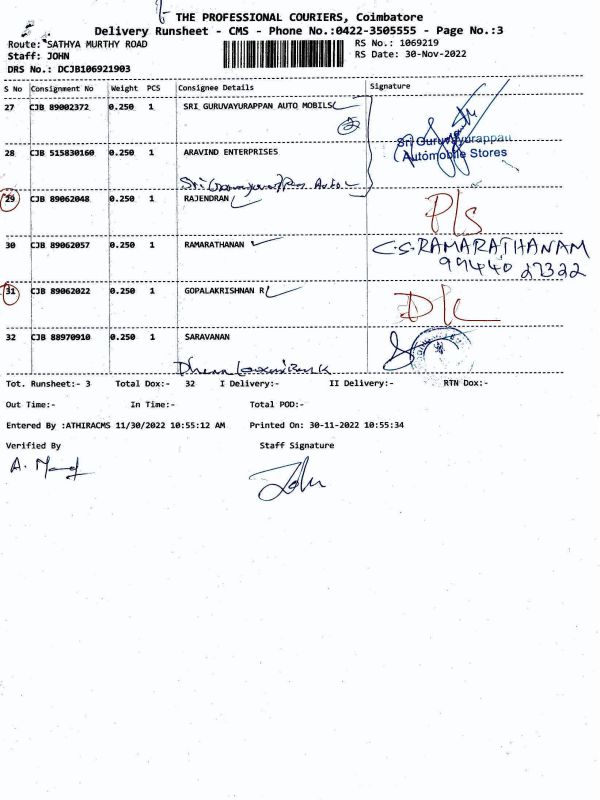 THE PROFESSIONAL COURIERS, Coimbatore
Delivery Runsheet - CMS - Phone No.:0422-3505555 - Page No.:3
Route: SATHYA MURTHY ROAD RS No.: 1069219
Staff: JOHN RS Date: 30-Nov-2022
DRS No.: DCJB106921903
S No Consignment No Weight PCS Consignee Details Signature
27 CJB 89002372 0.250 1 SRI GURUVAYURAPPAN AUTO MOBILS
Sri Guruvayurappan
Automobile Stores
28 CJB 515830160 0.250 1 ARAVIND ENTERPRISES
29 CJB 89062048 0.250 1 RAJENDRAN P/s
30 CJB 89062057 0.250 1 RAMARATHANAN C.S.RAMARATHANAM
99440 27322
31 CJB 89062022 0.250 1 GOPALAKRISHNAN R D/L
32 CJB 88970910 0.250 1 SARAVANAN
Tot. Runsheet:- 3 Total Dox:- 32 I Delivery:- II Delivery:- RTN Dox:-
Out Time:- In Time:- Total POD:-
Entered By :ATHIRACMS 11/30/2022 10:55:12 AM Printed On: 30-11-2022 10:55:34
Verified By Staff Signature
John